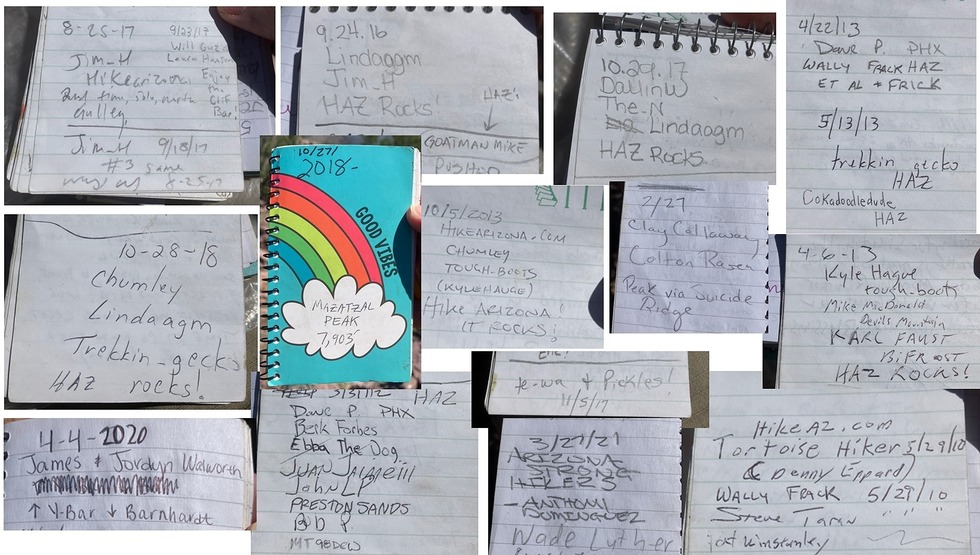 8-25-17
Jim_H
Hikearizona
2nd time, solo, north
Gulley
9/23/17
Enjoy
Bar.
Jim_H 9/18/17
#3 same
way as 8-25-17
9.24.16
Lindaagm
Jim_H
HAZ Rocks
HAZ!
GOATMAN MIKE
10.29.17
The_N
Lindaagm
HAZ Rocks
4/22/13
Dave P. PHX
WALLY FRACK HAZ
ET AL & FRICK
5/13/13
trekkin gecko
HAZ
Cokadoodledude
HAZ
10/27/
2018-
GOOD VIBES
MAZATZAL
PEAK
7,903'
10/5/2013
HIKEARIZONA.COM
CHUMLEY
TOUGH-BOOTS
(KYLEHAUGE)
HIKE ARIZONA!
IT ROCKS!
2/27
Clay Collaway
Colton Rasen
Peak via Suicide
Ridge
10-28-18
Chumley
Lindaagm
Trekkin_gecko
HAZ rocks!
4-6-13
Kyle Hauge
tough-boots
Mike McDonald
Devils Mountain
KARL FAUST
BIFROST
HAZ ROCKS!
te-wa & Pickles!
11/5/17
4-4-2020
James & Jordyn Walworth
↑ Y-Bar ↓ Barnhardt
3/31/12 HAZ
Dave P. PHX
Berk Forbes
Ebba The Dog
John LP
PRESTON SANDS
Bob P.
MT98DEW
3/27/21
ARIZONA
STRONG
HIKERS
- ANTHONY
DOMINGUEZ
Wade Luther
HikeAZ.com
Tortoise Hiker 5/29/10
(& Denny Eppard)
WALLY FRACK 5/29/10
Steve Taran " " "